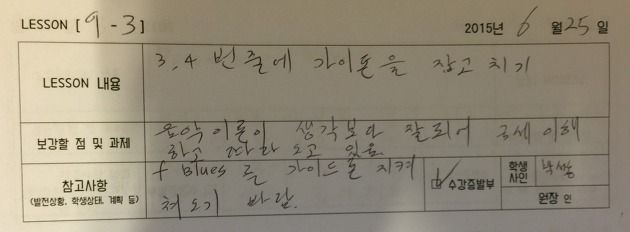 LESSON [ 9 - 3 ] 2015년 6 월 25 일
LESSON 내용
3, 4 번 줄에 가이톤을 잡고 치기
보강할 점 및 과제
음악이론이 생각보다 잘되어 금세 이해
하고 따라 오고 있음.
참고사항
(발전상황, 학생상태, 계획 등)
f Blues 를 가이드톤 지켜
쳐오기 바람.
수강증발부
학생
사인
원장 인